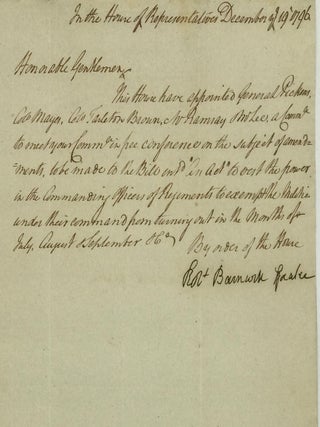 In the House of Representatives December 19th 1796
Honorable Gentlemen
This House have appointed General Pickens,
Colo Mayson, Colo Tarleton Brown, Mr Ramsay Mr Lee, a Committee
to meet your Committee in free conference on the subject of amend-
-ments, to be made to the Bill entd "an Act to vest the power
in the Commanding Officers of Regiments to exempt the Militia
under their command from turning out in the Months of
July, August & September &ca
By order of the House
Robt Barnwell Speaker